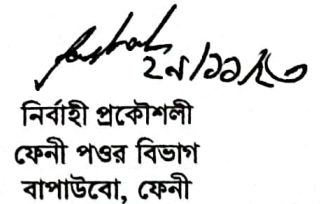 ২৭/১১/২৩
নির্বাহী প্রকৌশলী
ফেনী পওর বিভাগ
বাপাউবো, ফেনী